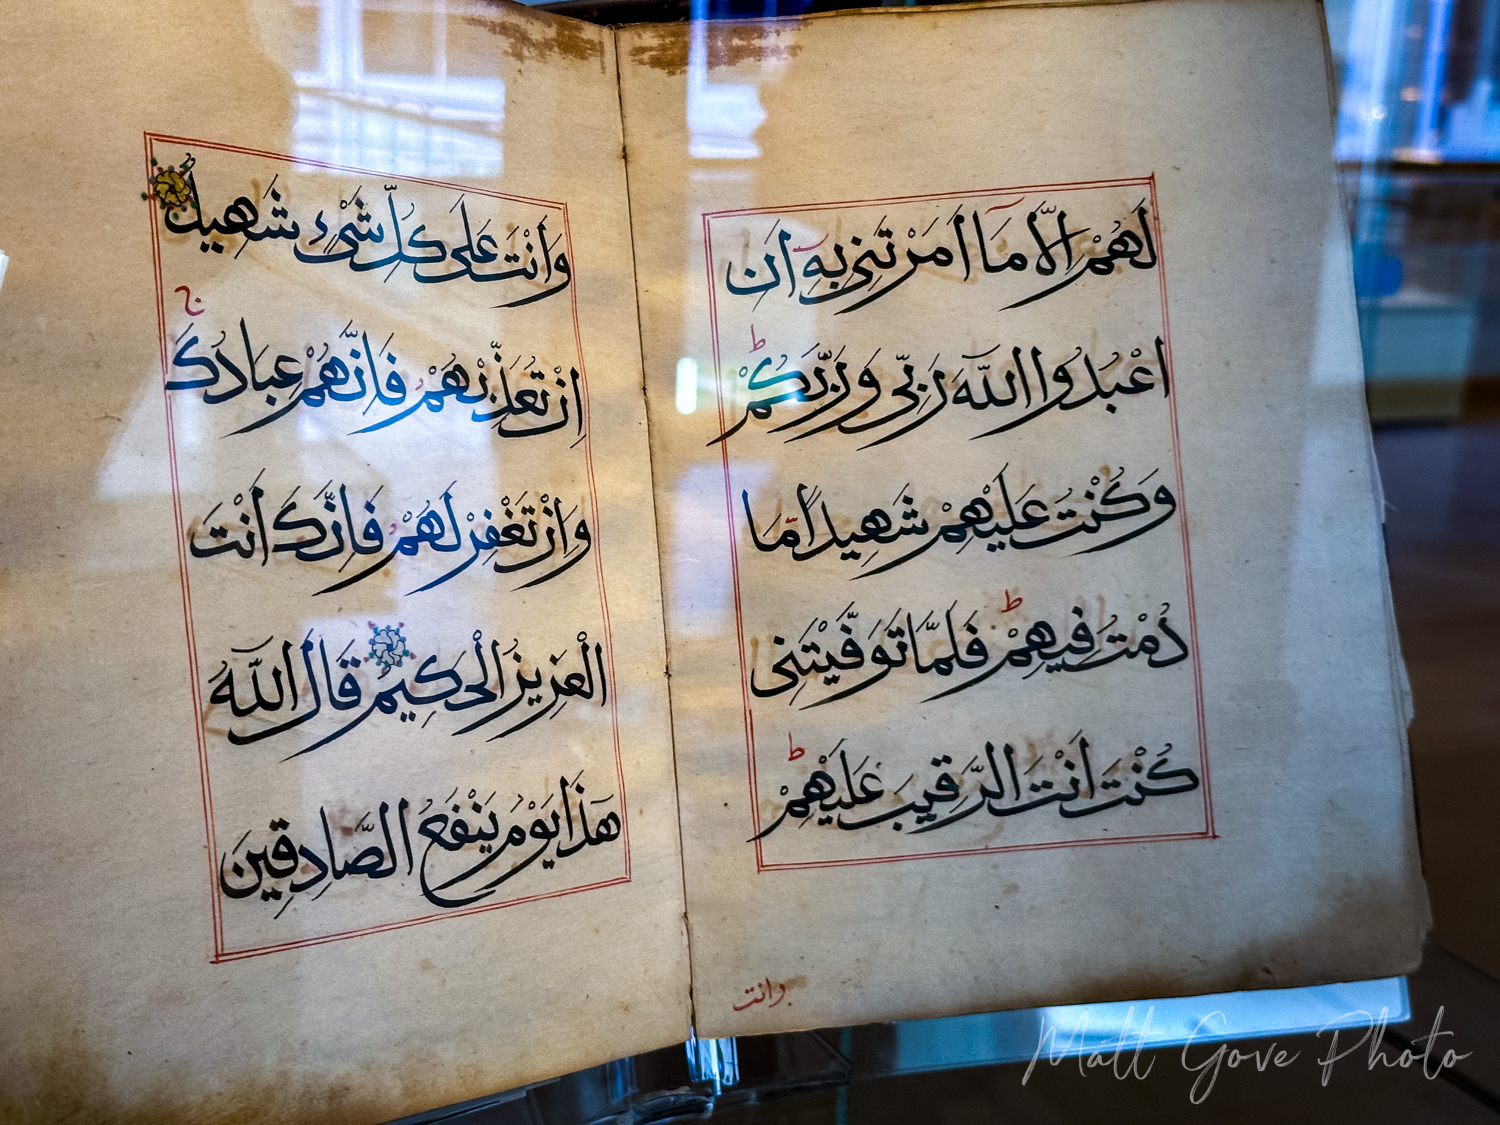 لَهُمْ اِلَّا مَآ اَمَرْتَنِى بِهٖٓ اَنِ
اعْبُدُوا اللّٰهَ رَبِّى وَرَبَّكُمْ ط
وَكُنْتُ عَلَيْهِمْ شَهِيْدًا مَّا
دُمْتُ فِيهِمْ ط فَلَمَّا تَوَفَّيْتَنِى
كُنْتَ اَنْتَ الرَّقِيبَ عَلَيْهِمْ ط
وانت
وَاَنْتَ عَلٰى كُلِّ شَىْءٍ شَهِيدٌ
اِنْ تُعَذِّبْهُمْ فَاِنَّهُمْ عِبَادُكَ ج
وَاِنْ تَغْفِرْ لَهُمْ فَاِنَّكَ اَنْتَ
الْعَزِيزُ الْحَكِيمُ قَالَ اللّٰهُ
هٰذَا يَوْمُ يَنْفَعُ الصَّادِقِينَ
Matt Gove Photo